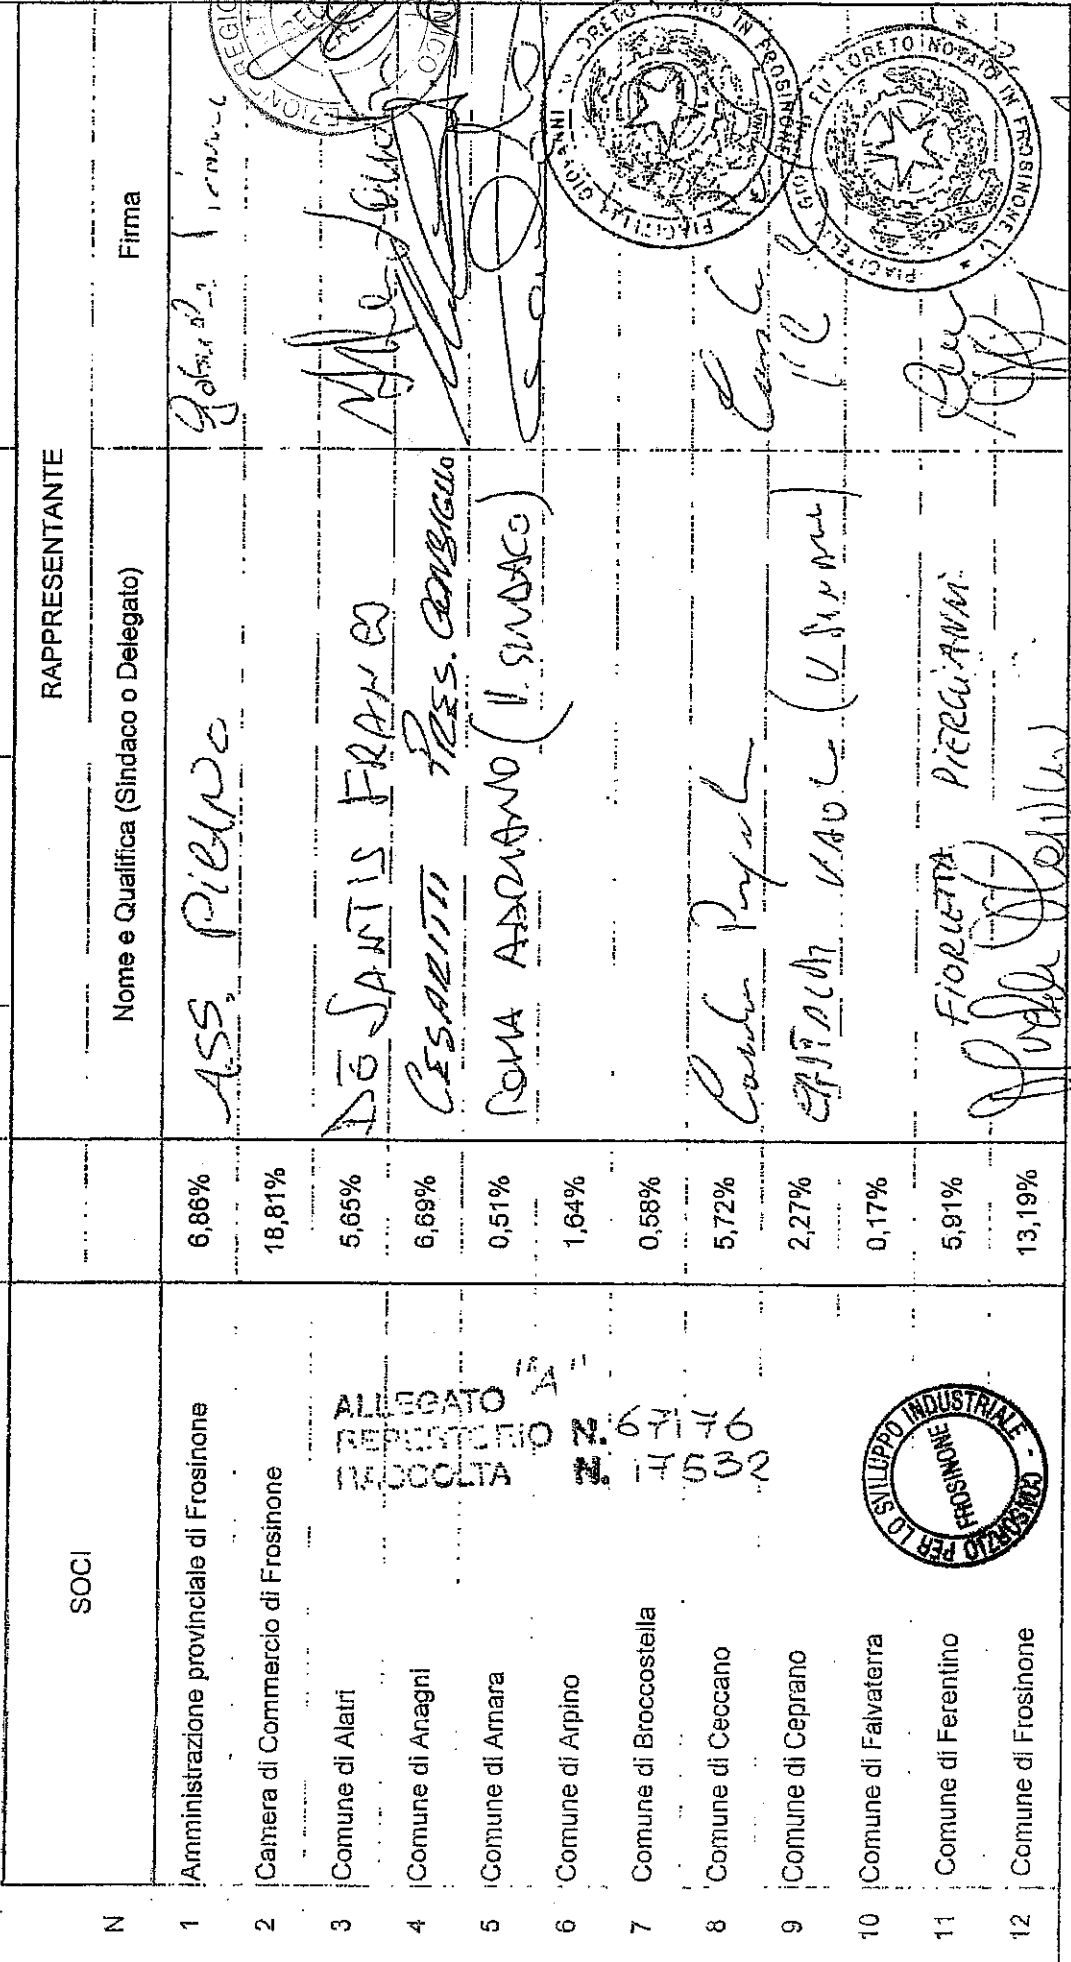 RAPPRESENTANTE
SOCI
N
Nome e Qualifica (Sindaco o Delegato)
Firma
1 Amministrazione provinciale di Frosinone 6,86% ASS.
2 Camera di Commercio di Frosinone 18,81%
3 Comune di Alatri 5,65% DE SANTIS FRANCO
4 Comune di Anagni 6,69% CESARITTI PRES. CONSIGLIO
5 Comune di Arnara 0,51% ROMA ADRIANO (V. SINDACO)
6 Comune di Arpino 1,64%
7 Comune di Broccostella 0,58%
8 Comune di Ceccano 5,72%
9 Comune di Ceprano 2,27%
10 Comune di Falvaterra 0,17%
11 Comune di Ferentino 5,91% FIORLETTA PIERGIANNI
12 Comune di Frosinone 13,19%
ALLEGATO "A"
REPERTORIO N. 67176
RACCOLTA N. 17532
CONSORZIO PER LO SVILUPPO INDUSTRIALE -
FROSINONE
PIACITELLI GIOVANNI FU LORETO NOTAIO IN FROSINONE
PIACITELLI GIOVANNI FU LORETO NOTAIO IN FROSINONE